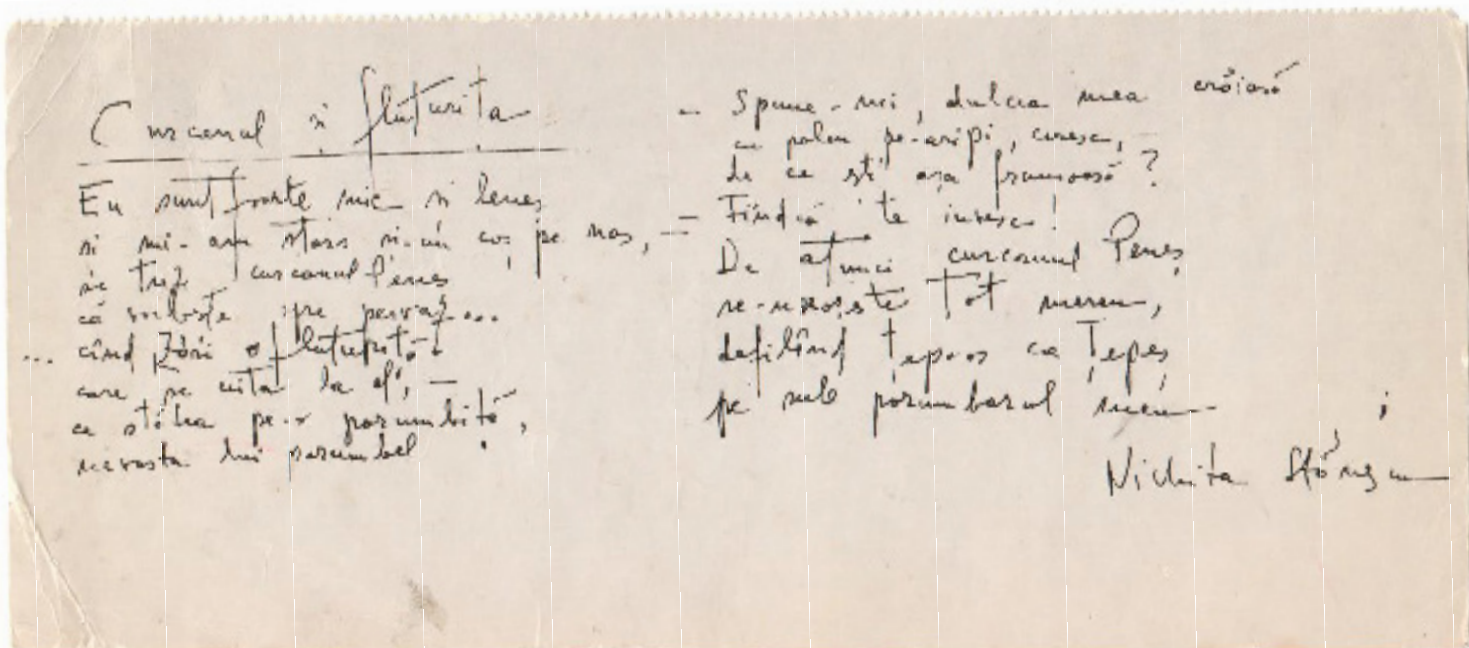 Curcanul și fluturița
Eu sunt foarte mic și leneș
și mi-am stors și-un coș pe nas,
zic curcanul Peneș
că vorbește
... cînd zări o fluturiță
care se uita la el, —
ca stélua pe-o porumbiță,
nevasta lui porumbel
– Spune-mi, dulcea mea crăiasă
cu polen pe-aripi, ceresc,
de ce ești așa frumoasă?
– Findcă te iubesc!
De atunci curcanul Peneș,
se-nroșește tot mereu,
defilînd țepos ca Țepeș
pe sub porumbarul meu
Nichita Stănescu